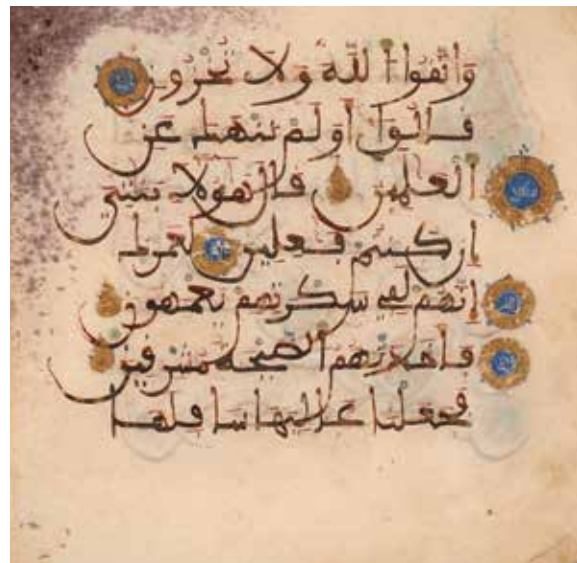 وَاتَّقُوا اللَّهَ وَلَا تُخْزُونِ
قَالُوا أَوَلَمْ نَنْهَكَ عَنِ
الْعَلَمِينَ قَالَ هَؤُلَاءِ بَنَتِي
إِن كُنتُمْ فَعِلِينَ لَعَمْرُكَ
إِنَّهُمْ لَفِي سَكْرَتِهِمْ يَعْمَهُونَ
فَأَخَذَتْهُمُ الصَّيْحَةُ مُشْرِقِينَ
فَجَعَلْنَا عَالِيَهَا سَافِلَهَا